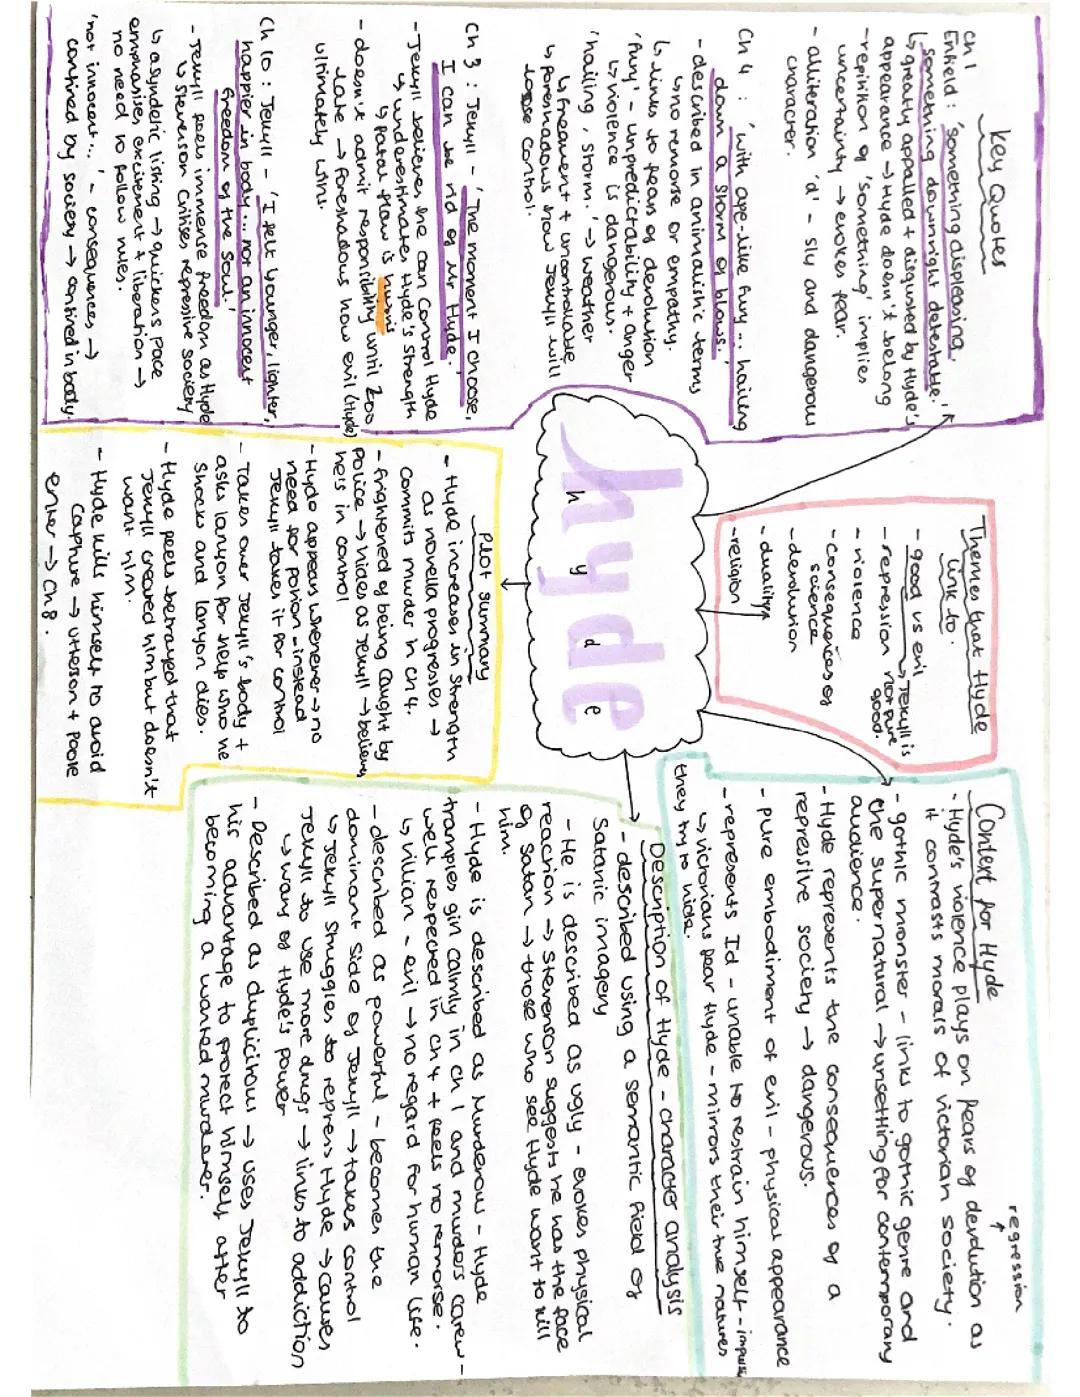 Key Quotes
Ch 1
Enfield: 'something displeasing,
something downright detestable.'
↳ greatly appalled + disgusted by Hyde's
appearance → Hyde doesn't belong
- repitition of 'something' implies
uncertainty → evokes fear.
- alliteration 'd' - sly and dangerous
character.
Ch 4 : 'with ape-like fury... hailing
down a storm of blows.'
- described in animalistic terms
↳ no remorse or empathy.
↳ links to fears of devolution
'fury' - unpredictability + anger
↳ violence is dangerous.
'hailing, storm.' → weather
↳ frequent + uncontrollable
↳ foreshadows how Jekyll will
loose control.
Ch 3 : Jekyll - 'The moment I choose,
I can be rid of Mr Hyde.'
- Jekyll believes he can control Hyde
↳ underestimates Hyde's strength
↳ fatal flaw is
- doesn't admit responsibility until too
late → foreshadows how evil (Hyde)
ultimately wins.
Ch 10 : Jekyll - 'I felt younger, lighter,
happier in body... not an innocent
freedom of the soul.'
- Jekyll feels immense freedom as Hyde
↳ Stevenson critises repressive society
↳ asyndetic listing → quickens pace
emphasises excitement + liberation →
no need to follow rules.
'not innocent...' - consequences →
confined by society → confined in body.
Themes that Hyde
link to.
- good vs evil
→ Jekyll is
not pure
good.
- repression
- violence
- consequences of
science
- devolution
- duality
- religion
hyde
hyde
Plot summary
- Hyde increases in strength
as novella progresses →
commits murder in ch 4.
- frightened of being caught by
police → hides as Jekyll → believes
he's in control
- Hyde appears whenever → no
need for potion - instead
Jekyll takes it for control
- Takes over Jekyll's body +
asks Lanyon for help who he
shocks and Lanyon dies.
- Hyde feels betrayed that
Jekyll created him but doesn't
want him.
- Hyde kills himself to avoid
capture → Utterson + Poole
enter → Ch 8.
regression
Context for Hyde
- Hyde's violence plays on fears of devolution as
it contrasts morals of victorian society.
- gothic monster - links to gothic genre and
the supernatural → unsettling for contemporary
audience.
- Hyde represents the consequences of a
repressive society → dangerous.
- pure embodiment of evil - physical appearance
- represents Id - unable to restrain himself - impulse
↳ victorians fear Hyde - mirrors their true natures
they try to hide.
Description of Hyde - character analysis
- described using a semantic field of
Satanic imagery
- He is described as ugly - evokes physical
reaction → Stevenson suggests he has the face
of Satan → those who see Hyde want to kill
him.
- Hyde is described as murderous - Hyde
tramples girl calmly in ch 1 and murders Carew -
well respected in ch 4 + feels no remorse.
↳ villian - evil → no regard for human life.
- described as powerful - becomes the
dominant side of Jekyll → takes control
↳ Jekyll struggles to repress Hyde → causes
Jekyll to use more drugs → links to addiction
↳ wary of Hyde's power
- Described as duplicitous → uses Jekyll to
his advantage to protect himself after
becoming a wanted murderer.